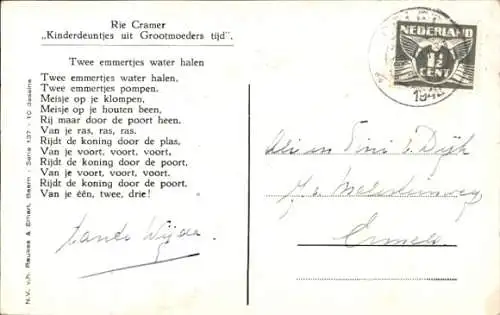 Rie Cramer
„Kinderdeuntjes uit Grootmoeders tijd".
Twee emmertjes water halen
Twee emmertjes water halen,
Twee emmertjes pompen.
Meisje op je klompen,
Meisje op je houten been,
Rij maar door de poort heen.
Van je ras, ras, ras.
Rijdt de koning door de plas,
Van je voort, voort, voort,
Rijdt de koning door de poort,
Van je voort, voort, voort.
Rijdt de koning door de poort,
Van je één, twee, drie!
tante
N.V. v.h. Reukes & Baarn - Serie 137 - 10 dessins
NEDERLAND
1½
CENT
en Dijk
Ermelo.